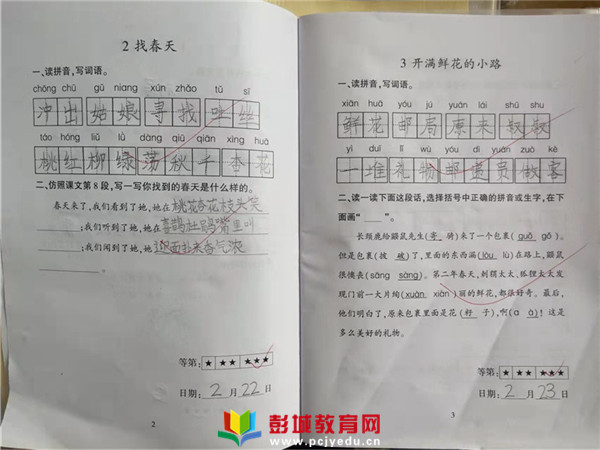 2 找春天
一、读拼音,写词语。
chōng chū gū niang xún zhǎo tǔ sī
冲出 姑娘 寻找 吐丝
táo hóng liǔ lǜ dàng qiū qiān xìng huā
桃红柳绿 荡秋千 杏花
二、仿照课文第8段,写一写你找到的春天是什么样的。
春天来了,我们看到了她,她在桃花杏花枝头笑
;我们听到了她,她在喜鹊杜鹃嘴里叫
;我们闻到了她,她迎面扑来香气浓
。
等第: ★ ★★ ★★★
日期: 2 月 22 日
2
3 开满鲜花的小路
一、读拼音,写词语。
xiān huā yóu jú yuán lái shū shu
鲜花 邮局 原来 叔叔
yì duī lǐ wù yóu dì yuán zuò kè
一堆 礼物 邮递员 做客
二、读一读下面这段话,选择括号中正确的拼音或生字,在下
面画“ ”。
长颈鹿给鼹鼠先生(寄 骑)来了一个包裹(guǒ gǒ)。
但是包裹(披 破)了,里面的东西漏(lòu lù)在路上,鼹鼠
很懊丧(sāng sàng)。第二年春天,刺猬太太、狐狸太太发
现门前一大片绚(xuàn xiàn)丽的鲜花,都很好奇。最后,
他们明白了,原来包裹里面是花(籽 子),啊(ā à)!这是
多么美好的礼物。
等第: ★ ★★ ★★★
日期: 2 月 23 日
3
彭城教育网
www.pcjyedu.cn